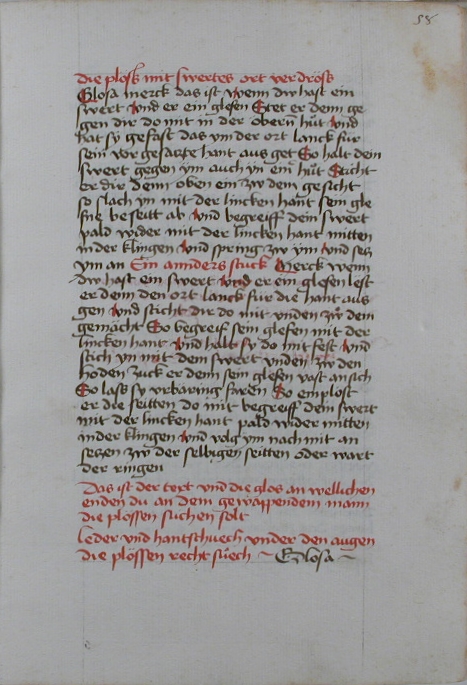 58
die plosß mit swertes ort verdröss
Glosa merck das ist wenn dw hast ein
swert Vnd er ein glefen Stet er denn ge
gen dir do mit in der obern hut Vnd
hat sy gefast das vm der ort lanck für
sein vor gesatzte hant aus get So halt dein
swert gegen ym auch yn ein hut Sticht
er dir denn oben ein zw dem gesicht
so slach yn mit der lincken hant sein gle
fne beseitt ab Vnd begreiff dein swert
pald wider mit der lincken hant mitten
in der klingen Vnd spring zw ym Vnd secz
ym an Ein annders stuck Merck wenn
dw hast ein swert Vnd er ein glefen lest
er denn den ort lanck für die hant aus
gen Vnd sticht dir do mit vnden zw dem
gemächt So begreif sein glefen mit der
lincken hant Vnd halt sy do mit fest Vnd
stich yn mit dem swert vnden zw den
hoden zuck er denn sein glefen vast an sich
So lass sy vrbaring faren So emplost
er die seitten do mit begreiff dein swert
mit der lincken hant pald wider mitten
in der klingen Vnd volg ym nach mit an
seczen zw der selbigen seitten oder wart
der ringen
Das ist der text vnd die glos an wellichen
enden du an dem gewappendem mann
die plossen suchen solt
leder vnd hantschuech vnder den augen
die plössen recht suech ~ Glosa ~